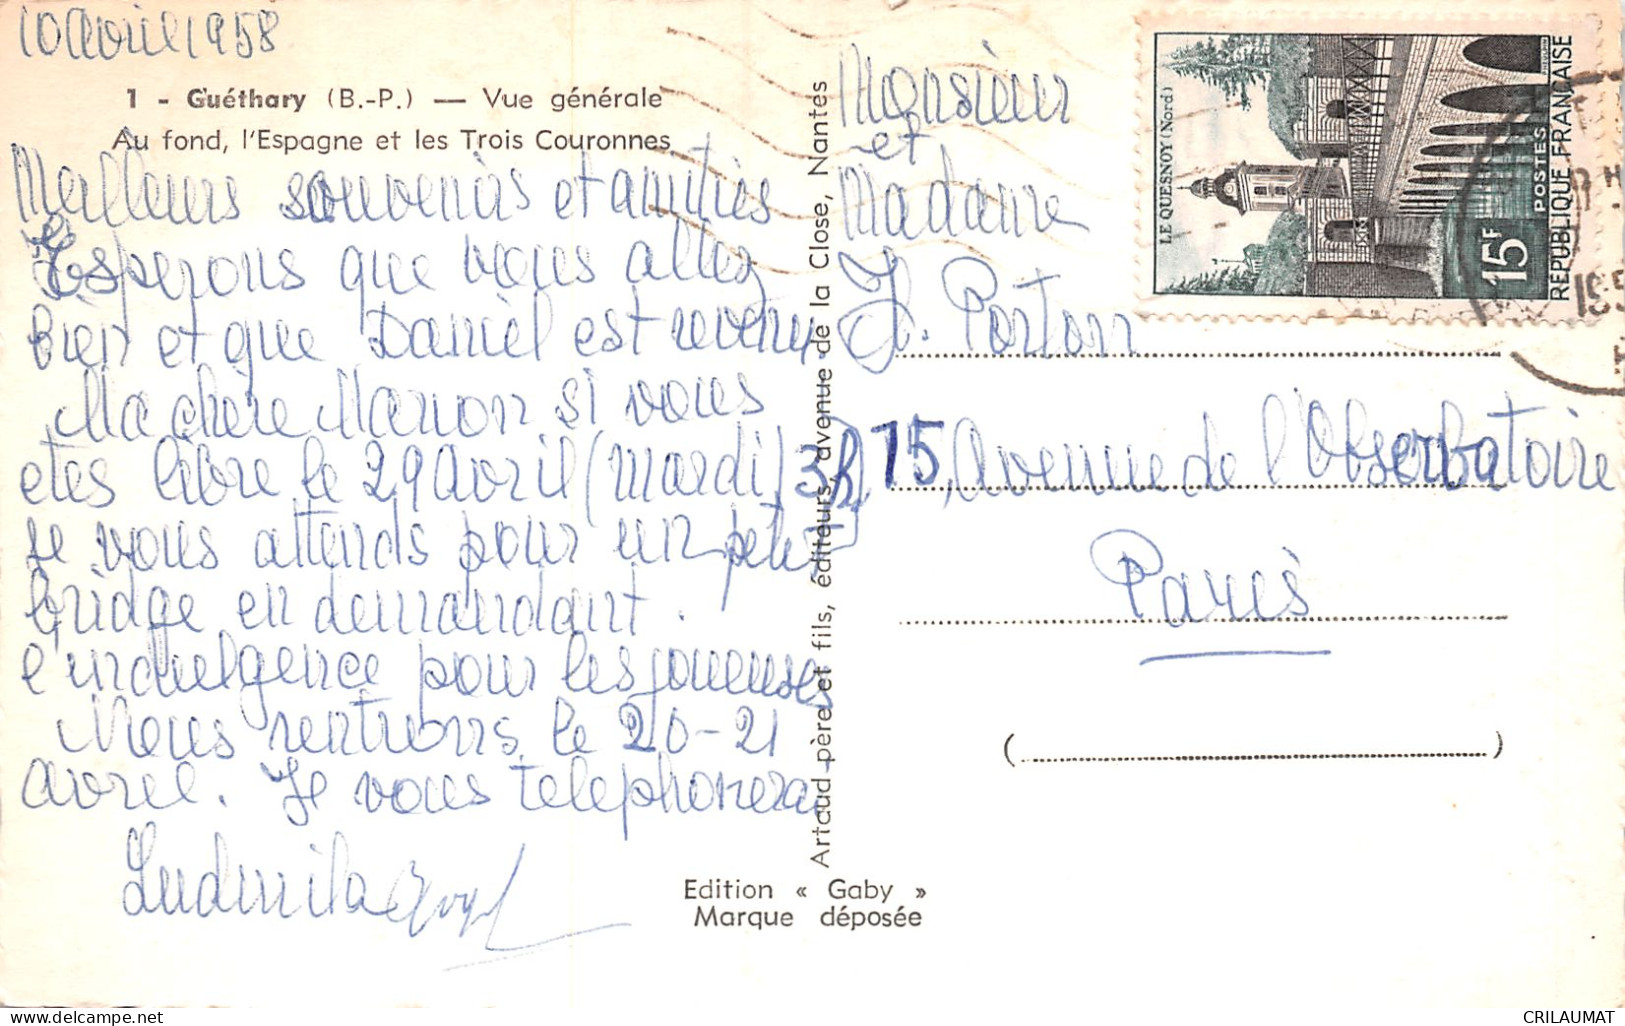 10 Avril 1958
1 - Guéthary (B.-P.) — Vue générale
Au fond, l'Espagne et les Trois Couronnes
Meilleurs souvenirs et amitiés
J'esperons que vous allez
bien et que Daniel est revenu.
Ma chère Manon si vous
etes libre le 29 Avril (mardi) 3h,
je vous attends pour un petit
bridge en demandant.
l'indulgence pour les joueuses
Nous rentrons le 20-21
avril. Je vous telephonerai
Ludmila
Artaud père et fils, éditeurs, avenue de la Close, Nantes
Edition « Gaby »
Marque déposée
Monsieur
et
Madame
J. Porton
15, Avenue de l'Observatoire
Paris
(
)
LE QUESNOY (Nord)
15F
POSTES
REPUBLIQUE FRANÇAISE
CRILAUMAT